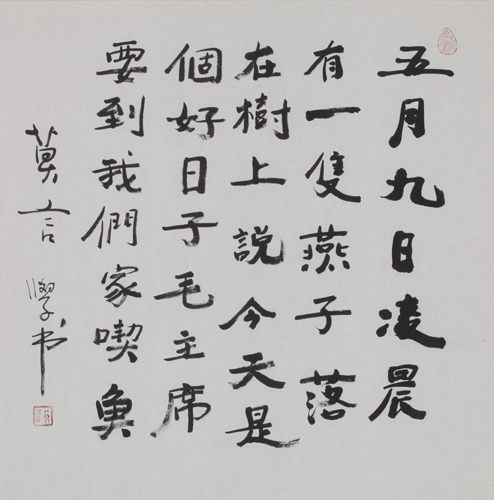 五月九日凌晨
有一隻燕子落
在樹上説今天是
個好日子毛主席
要到我們家喫魚
莫言
书